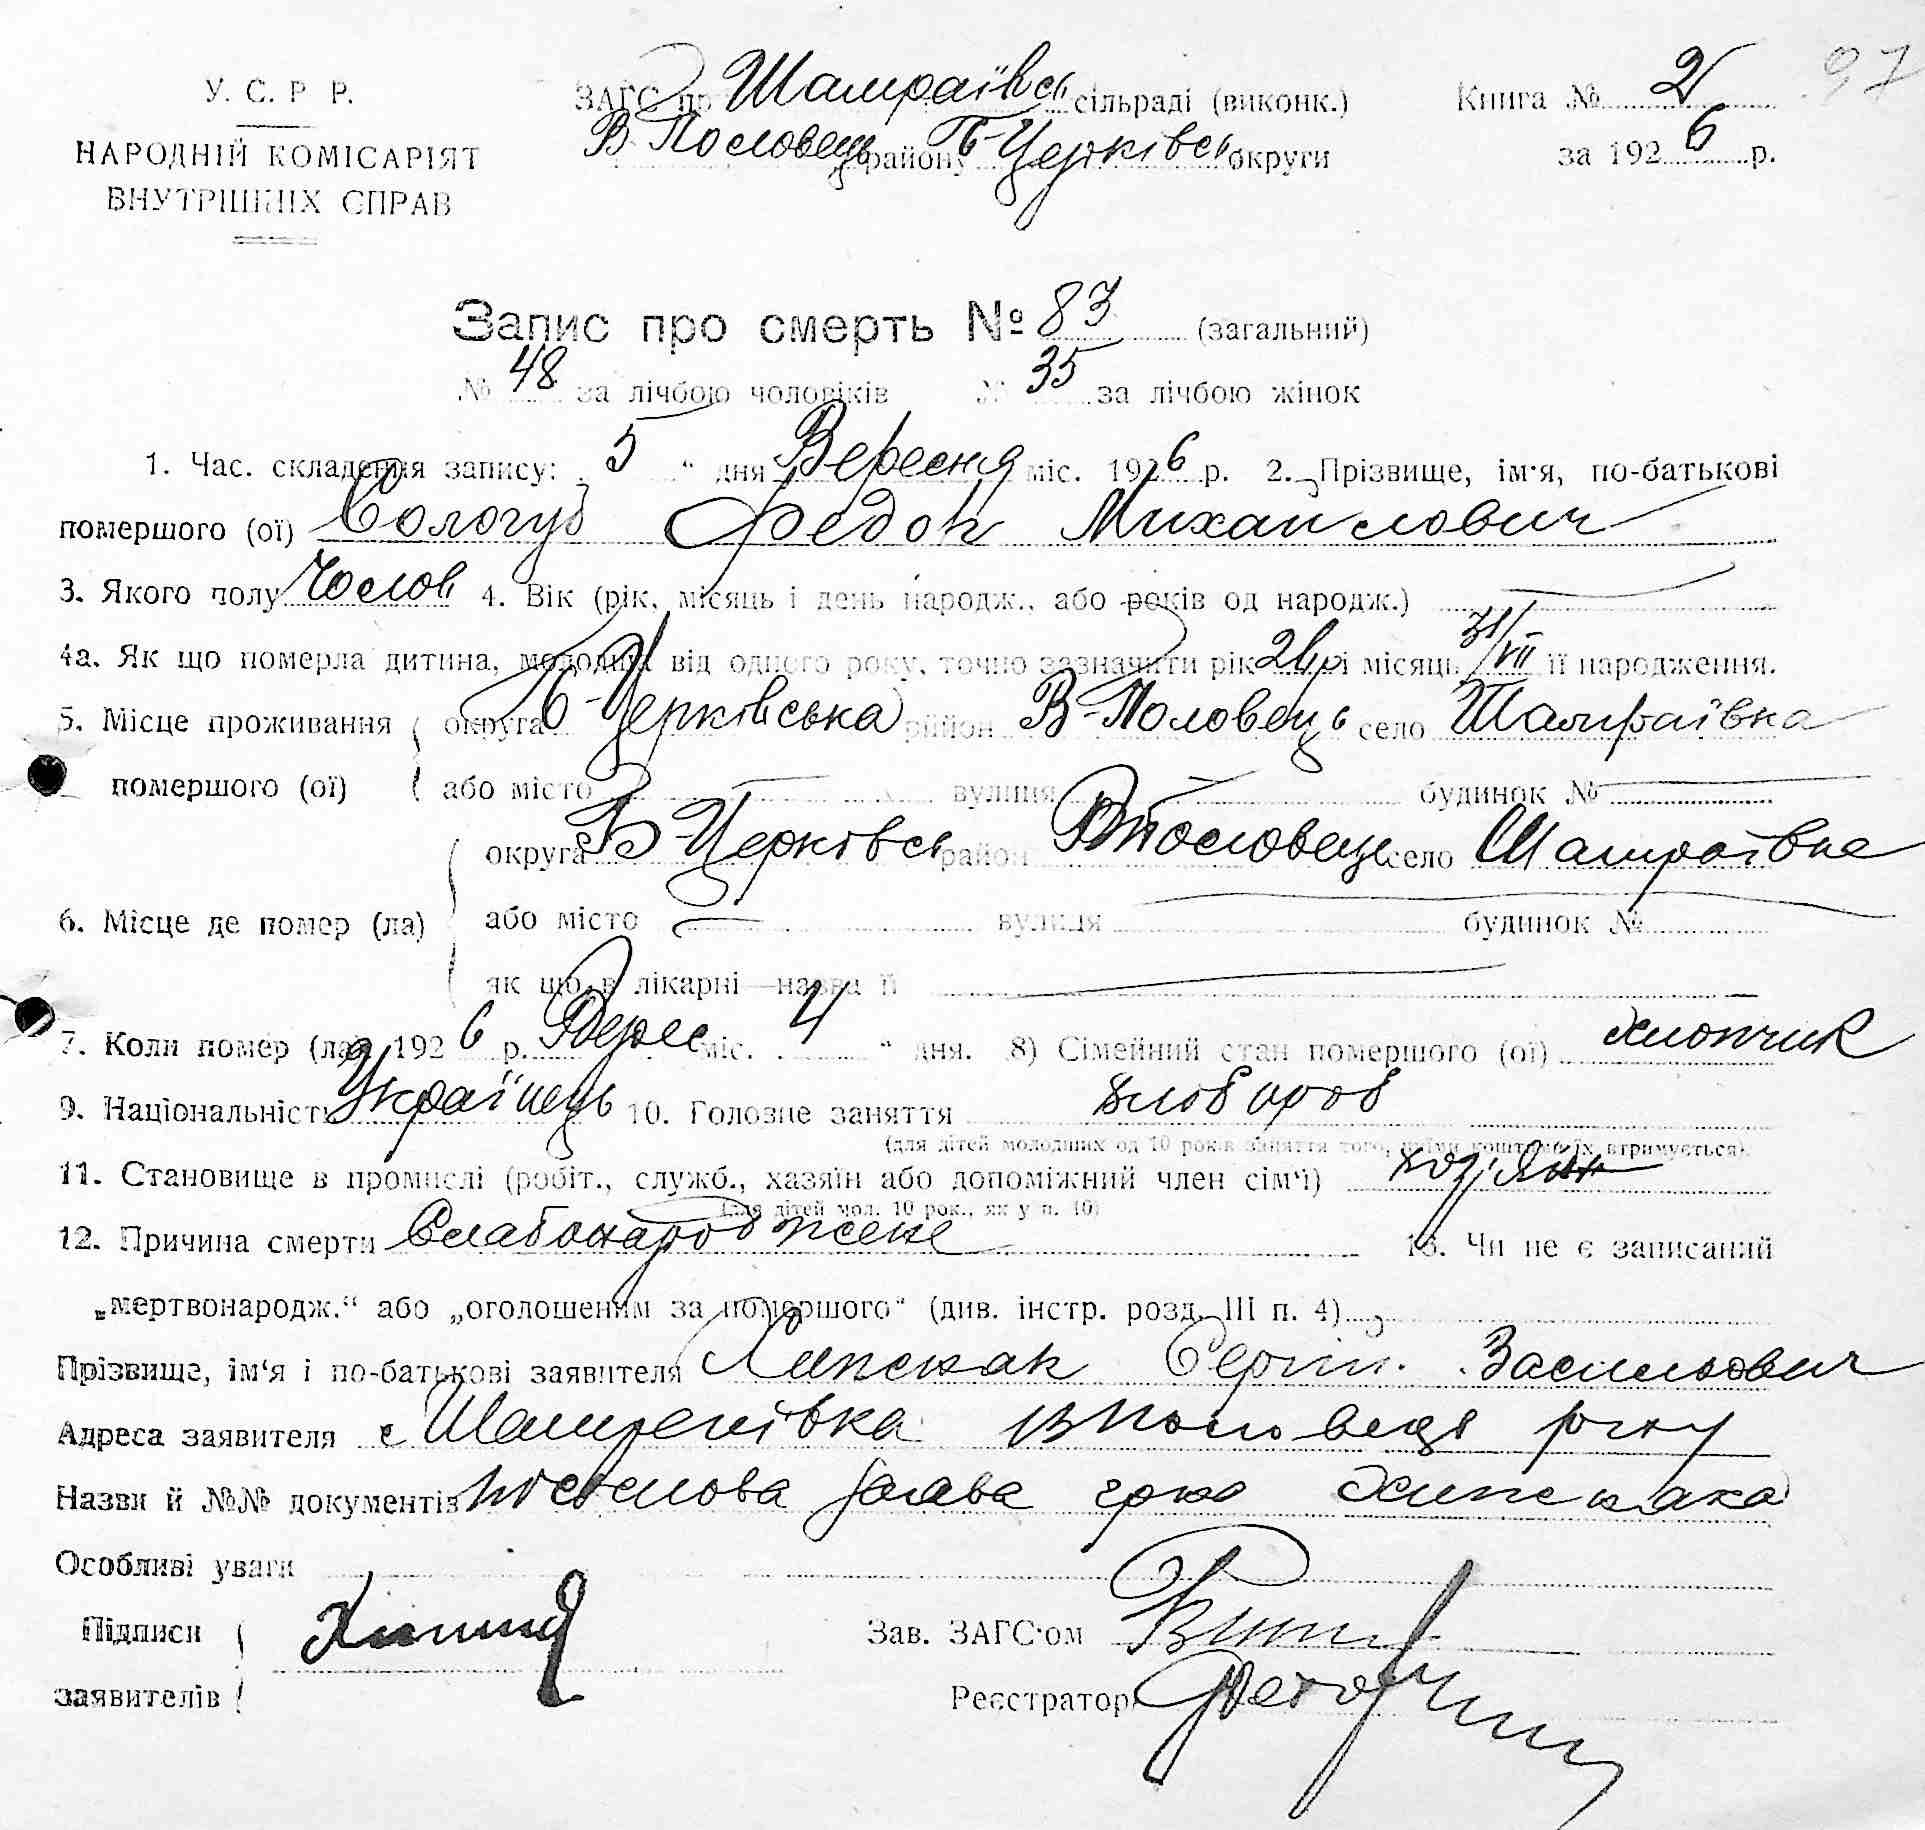 У. С. Р Р.
НАРОДНІЙ КОМІСАРІЯТ
ВНУТРІШНІХ СПРАВ
ЗАГС пр Шамраївсь сільраді (виконк.)
В Половець району Б-Церківсь округи
Книга № 2
97
за 1926 р.
Запис про смерть № 83 (загальний)
№ 48 за лічбою чоловіків № 35 за лічбою жінок
1. Час. складення запису: „5“ дня Вересня міс. 1926 р. 2. Прізвище, ім'я, по-батькові
помершого (ої) Сологуб Федор Михайлович
3. Якого полу Чолов 4. Вік (рік, місяць і день народж., або років од народж.)
4а. Як що померла дитина, молодша від одного року, точно зазначити рік 26 р і місяць 31/VII її народження.
5. Місце проживання помершого (ої) округа Б-Церківська район В-Половець село Шамраївка
або місто вулиця будинок №
6. Місце де помер (ла) округа Б-Церківсь район В Половець село Шамраївка
або місто вулиця будинок №
як що в лікарні—назва її
7. Коли помер (ла) 1926 р. Верес міс. 4 “ дня. 8) Сімейний стан помершого (ої) хлопчик
9. Національність Українець 10. Головне заняття хлібороб
(для дітей молодших од 10 років заняття того, чиїми коштами їх втримується).
11. Становище в промислі (робіт., служб., хазяїн або допоміжний член сім'ї) хозяїн
(для дітей мол. 10 рок., як у п. 10)
12. Причина смерти Слабонародження 13. Чи не є записаний
„мертвонародж.“ або „оголошеним за помершого“ (див. інстр. розд. III п. 4)
Прізвище, ім'я і по-батькові заявителя Сергій Васильович
Адреса заявителя с Шамраївка В Половець р-ну
Назви й №№ документів заява гр-на
Особливі уваги
Підписи
заявителів
Зав. ЗАГС'ом
Реєстратор